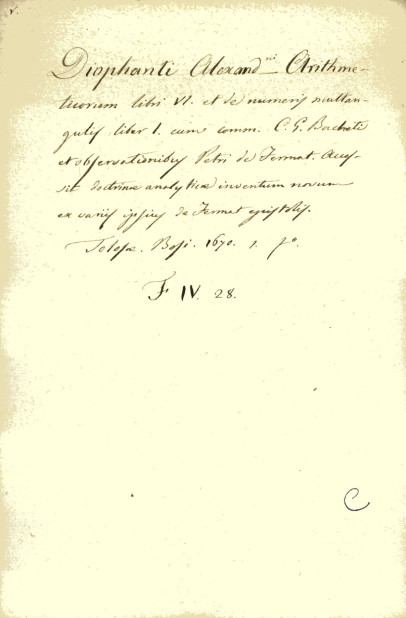 Diophanti Alexand.ni Arithme-
ticorum libri VI. et de numeris multan-
gulis liber I. cum comm. C. G. Bacheti
et observationibus Petri de Fermat. Acces-
sit doctrinæ analyticæ inventum novum
ex variis ipsius de Fermat epistolis.
Tolosæ. Bosc. 1670. 1. fo.
F IV. 28.
C